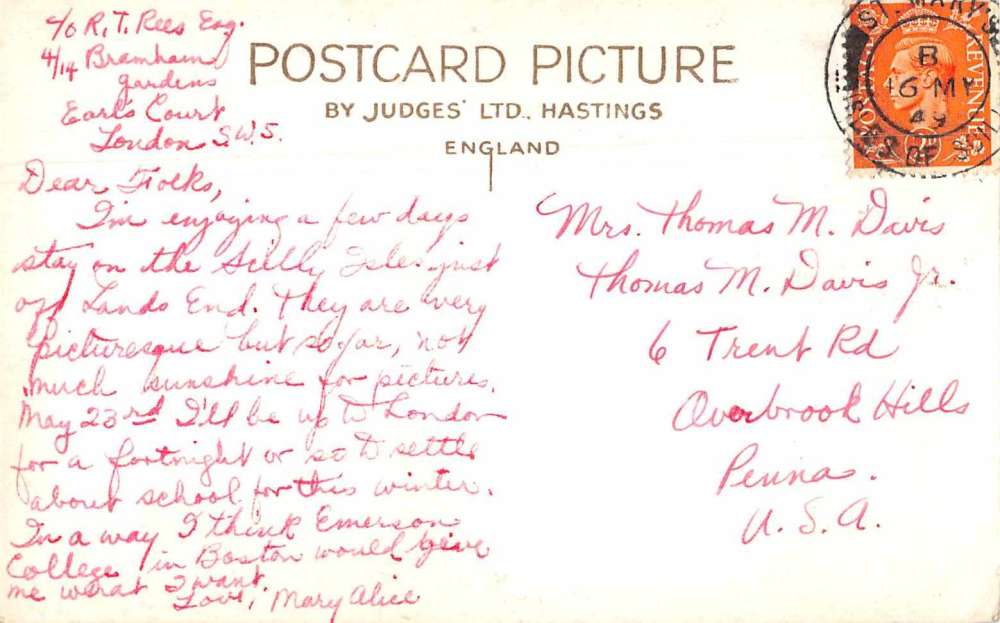 c/o R. T. Rees Esq.
4/14 Bramham
gardens
Earl's Court
London S.W.5.
POSTCARD PICTURE
BY JUDGES' LTD., HASTINGS
ENGLAND
Dear Folks,
I'm enjoying a few days
stay on the Scilly Isles just
off Lands End. They are very
picturesque but so far, not
much sunshine for pictures.
May 23rd I'll be up to London
for a fortnight or so to settle
about school for this winter.
In a way I think Emerson
College in Boston would give
me what I want.
Love, Mary Alice
Mrs. Thomas M. Davis
Thomas M. Davis Jr.
6 Trent Rd
Overbrook Hills
Penna.
U.S.A.
ST. MARY'S
B
16 MY
49
REVENUE